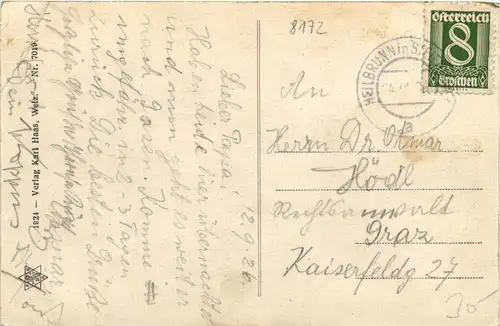 8172
Österreich
8
Groschen
HEILBRUNN in St
12.9.26.
Lieber Papa!
Haben heute hier übernachtet
und nun geht es weiter
nach Gasen. Komme
ungefähr in 2-3 Tagen
zurück. Die besten Grüße
An
Herrn Dr. Otmar
Hödl
Rechtsanwalt
Graz
Kaiserfeldg 27
30
1924 – Verlag Karl Haas, Weiz. – Nr. 7019.